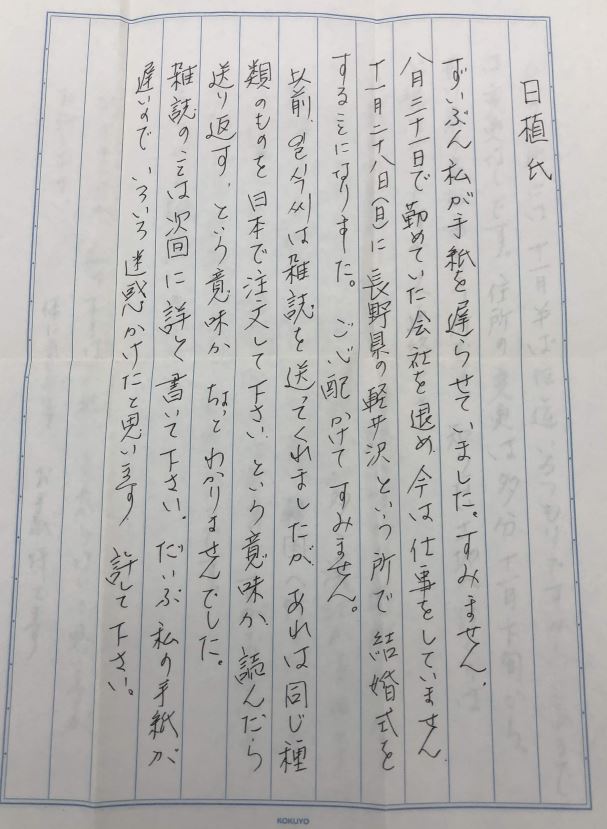 日植氏
ずいぶん 私が手紙を遅らせていました。すみません。
八月三十一日で勤めていた会社を退め、今は仕事をしていません。
十一月二十八日(日)に 長野県の軽井沢という所で 結婚式を
することになりました。ご心配かけて すみません。
以前、일식씨は雑誌を送ってくれましたが、あれは同じ種
類のものを日本で注文して下さい、という意味か、読んだら
送り返す、という意味か ちょっとわかりませんでした。
雑誌のことは次回に詳しく書いて下さい。だいぶ私の手紙が
遅いので いろいろ迷惑かけたと思います 許して下さい。
KOKUYO